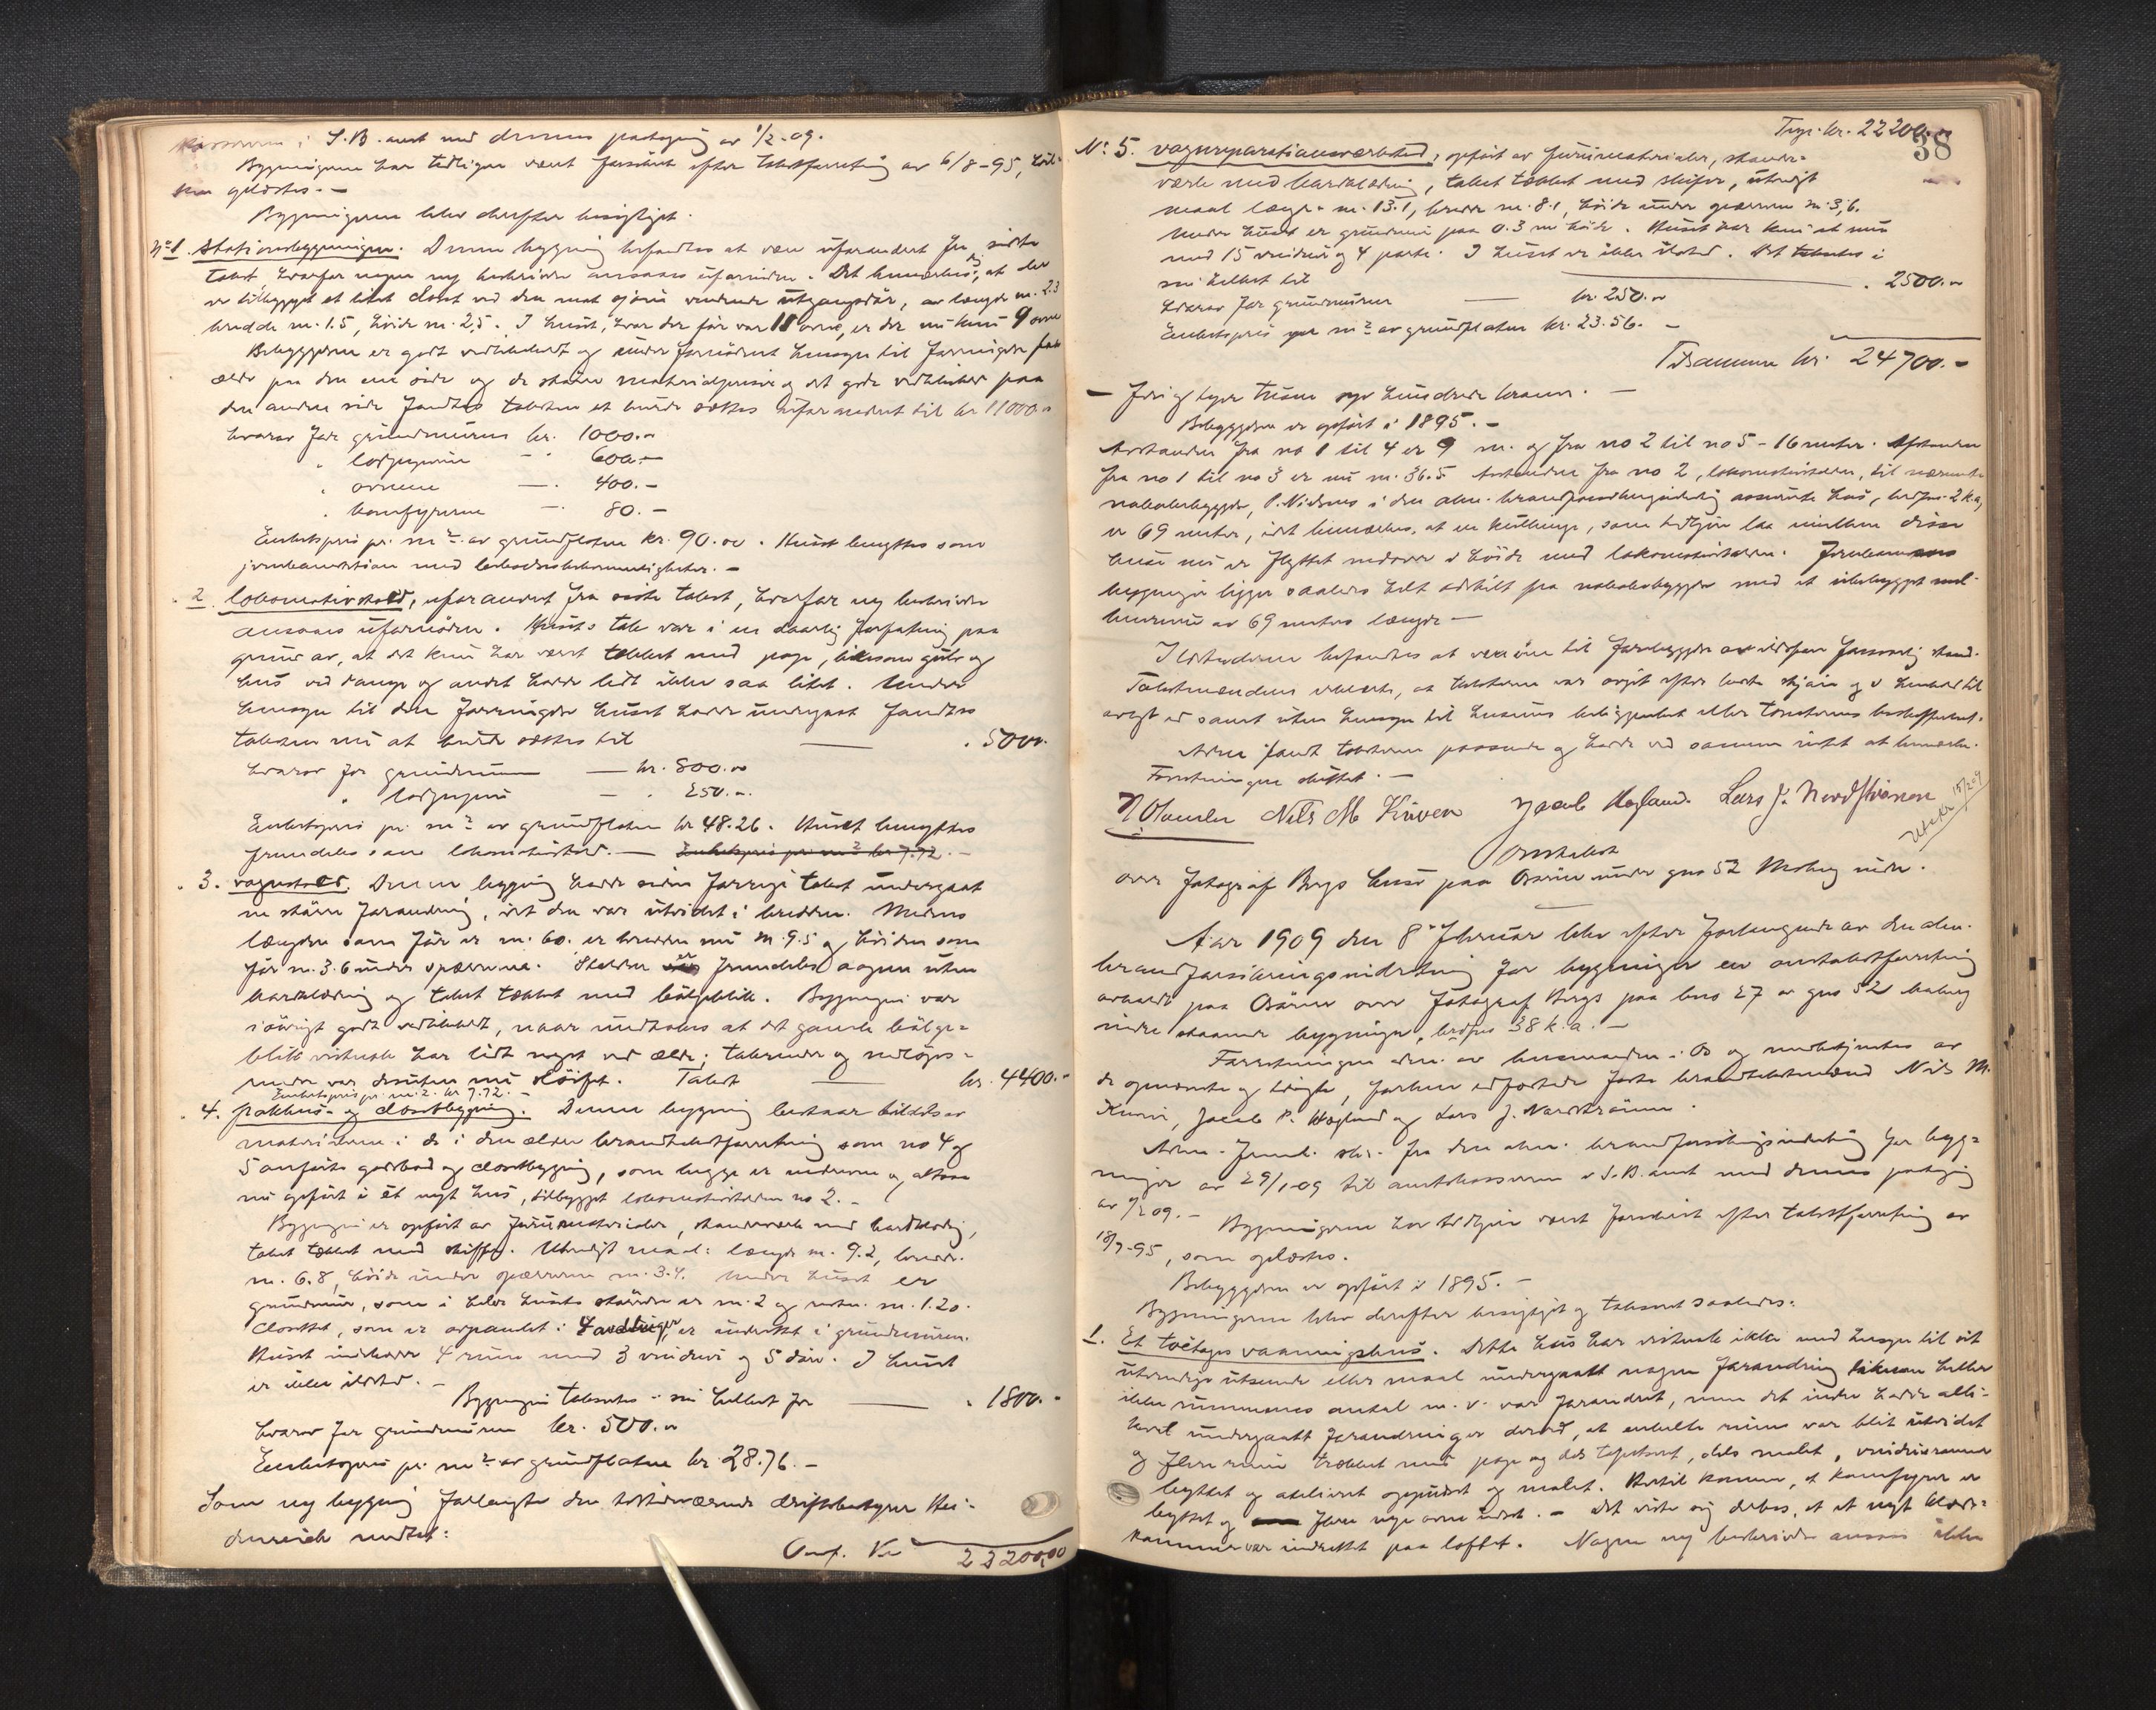 i S.B. amt med dennes paategning av 1/2-09.
Bygningerne har tidligere været forsikret efter takstforretning av 6/8-95, hvil-
ken oplæstes. -
Bygningerne blev derefter besigtiget.
No 1. Stationsbygningen. Denne bygning befandtes at være uforandret fra sidste
takst hvorfor nogen ny beskrivelse ansaaes ufornøden. Det bemerkes, at der
er tilbygget et litet closet ved den mot sjøen vendende utgangsdør, av længde m. 2.3
bredde m. 1.5, høide m. 2,5. I huset, hvor der før var 11 ovne, er der nu kun 9 ovne
Bebyggelsen er godt vedlikeholdt og under fornødent hensyn til forringelse
ælde paa den ene side og de større materialpriser og det gode vedlikehold paa
den anden side fandtes taksten at burde sættes uforandret til kr 11000.-
hvorav for grundmuren kr. 1000.-
" lorspipene - 600.-
" ovnene - 400.-
" komfyrerne - 80.-
Enhetspris pr. m2 av grundflaten kr. 90.00. Huset benyttes som
jernbanestation med beboelsesbekvemmeligheter. -
2. Lokomotivstald, uforandret fra siste takst, hvorfor ny beskrivelse
ansaaes ufornøden. Husets tak var i en daarlig forfatning paa
grund av, at det kun har været tækket med pap, likesom gulv og
hus ved damp og andet hadde lidt ikke saa litet. Under
hensyn til den forringelse huset hadde undergaat fandtes
taksten nu at burde sættes til — . 5000.
hvorav for grundmuren — kr. 800.00
" lorspipen - . 250.-
Enhetspris pr. m2 av grundflaten kr 48.26. Huset benyttes
fremdeles som lokomotivstald. — Enhetspris pr. m2 kr 7.72. -
3. vognstald. Denne bygning hadde siden forrige takst undergaat
en større forandring, idet den var utvidet i bredden. Medens
længden som før er m. 60. er bredden nu m. 9.5 og høiden som
før m. 3.6 under spærrene. Stalden er fremdeles aapen uten
bordklædning og taket tækket med bølgeblik. Bygningen var
iøvrigt godt vedlikeholdt, naar undtages at det gamle bølge-
blik visstnok har lidt noget ved ælde; takrender og nedløps-
render var desuten nu sløifet. Takst — kr. 4400.-
Enhetspris pr. m.2. kr 7.72. -
4. pakhus- og closetbygning. Denne bygning bestaar tildels av
materialerne i de i den ældre brandtakstforretning som no 4 og
5 anførte godsbod og closetbygning, som begge er nedrevne og altsaa
nu opført i ét nyt hus, tilbygget lokomotivstalden no 2. -
Bygningen er opført av furumaterialer, standerverk med bordklædning,
taket tækket med skiffer. Utvendigt maal: længde m. 9.2, bredde
m. 6.8, høide under spærrene m. 3.4. Under huset er
grundmur, som i halve husets størrelse er m. 2 og resten m. 1.20.
Closettet, som er avpanlet i 4 avdelinger, er indrettet i grundmuren.
Huset indeholder 4 rum med 3 vinduer og 5 døre. I huset
er ikke ildsted. -
Bygningen takseres i sin helhet for — . 1800.-
hvorav for grundmuren kr. 500.00
Enhetspris pr. m2 av grundflaten kr. 28.76. -
Som ny bygning forlangte den tilstedeværende driftsbestyrer Hei-
denreich medtat:
Overf. Kr 22200,00
38
Trsp. kr. 22200.
No 5. vognreparationsværksted, opført av furumaterialer, stander-
værk med bordklædning, taket tækket med skifer, utvendigt
maal længde m. 13.1, bredde m. 8.1, høide under spærrene m. 3,6.
Under huset er grundmur paa 0.3 m høide. Huset har kun et rum
med 15 vinduer og 4 porte. I huset er ikke ildsted. Det takseres i
sin helhet til — . 2500.00
hvorav for grundmuren — kr. 250.00
Enhetspris pr m2 av grundflaten kr. 23.56. -
Tilsammen kr. 24700.-
- Fire og tyve tusen syv hundrede kroner. -
Bebyggelsen er opført i 1895. -
Avstanden fra no 1 til 4 er 9 m. og fra no 2 til no 5 - 16 meter. Avstanden
fra no 1 til no 3 er nu m. 36.5. Avstanden fra no 2, lokomotivstalden, til nærmeste
nabobebyggelse, P. Nielsens i den alm. brandforsikringsindretning assurerte hus, brdfno. 2 k.a,
er 69 meter, idet bemærkes, at en kulbinge, som tidligere laa mellem disse
huse nu er flyttet nedover i høide med lokomotivstalden. Jernbanens
bygninger ligger saaledes helt adskilt fra nabobebyggelse med et ubebygget mel-
lemrum av 69 meters længde —
Ildstederne befandtes at være i en til forebyggelse av ildsfare forsvarlig stand.
Takstmændene erklærte, at taksterne var avgit efter bedste skjøn og i henhold til
avlagt ed samt uten hensyn til husenes beliggenhet eller tomternes beskaffenhet.
fandt taksterne passende og hadde ved samme intet at bemærke.
Forretningen sluttet. -
N Olander Nils M Kuven Jacob Hegland. Lars J. Nordstrømen
Utskr 15/2 09
Omtakst
over Fotograf Bergs huse paa Osøren under gno 52 Moberg nedre.
Aar 1909 den 8de februar blev efter forlangende av den alm.
brandforsikringsindretning for bygninger en omtakstforretning
avholdt paa Osøren over fotograf Bergs paa bno 27 av gno 52 Moberg
nedre staaende bygninger, brdfno 38 k.a. -
Forretningen adm. av lensmanden i Os og medbetjentes av
de opnævnte og tidligere, forhen edfæstede faste brandtakstmænd Nils M.
Kuven, Jacob P. Hegland og Lars J. Nordstrømen.
Adm. freml. skr. fra den alm. brandforsikringsindretning for byg-
ninger av 29/1-09 til amtskasseren i S.B. amt med dennes paategning
av 1/2 09. - Bygningerne har tidligere været forsikret efter takstforretning av
18/7-95, som oplæstes.
Bebyggelsen er opført i 1895. -
Bygningerne blev derefter besigtiget og taksert saaledes:
1. Et toetages vaaningshus. Dette hus har vistnok ikke med hensyn til sit
utvendige utseende eller maal undergaat nogen forandring likesom heller
ikke rummenes antal m. v. var forandret, men det indre hadde alli-
kevel undergaat forandringer derved, at enkelte rum var blit utvidet
og flere rum trækket med pap og dels tapetsert, dels malet, vinduerammer
byttet og atelieret oppudset og malet. Hertil kommer, at komfyrer er
byttet og flere nye ovne indsat. - Det viste sig derhos, at et nyt klæde-
kammer var indrettet paa loftet. Nogen ny beskrivelse ansaaes ikke